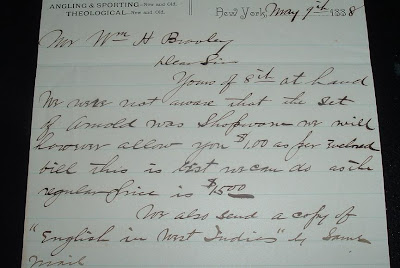 ANGLING & SPORTING—New and Old.
THEOLOGICAL—New and Old.
New York, May 9th 1888
Mr Wm H Bravley
Dear Sir
Yours of 8th at hand
We were not aware that the set
of Arnold was Shopworn we will
however allow you $1.00 as per Enclosed
bill this is best we can do as the
regular price is $15.00
We also send a copy of
"English in West Indies" by Same
mail